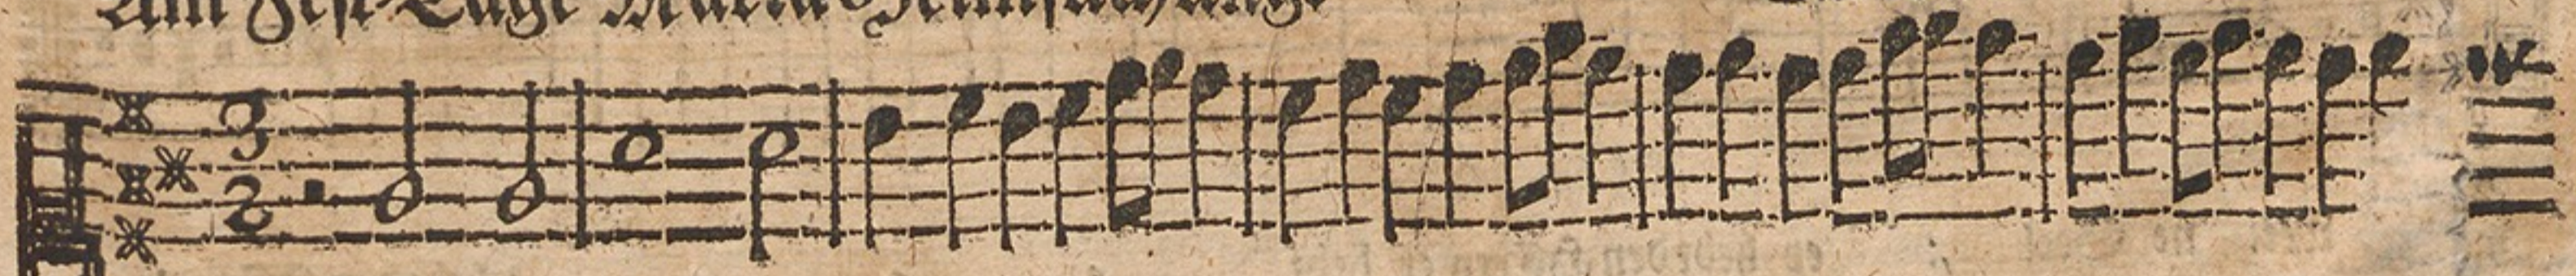 Am Fest-Tage Mariä Heimsuchung.
3
2